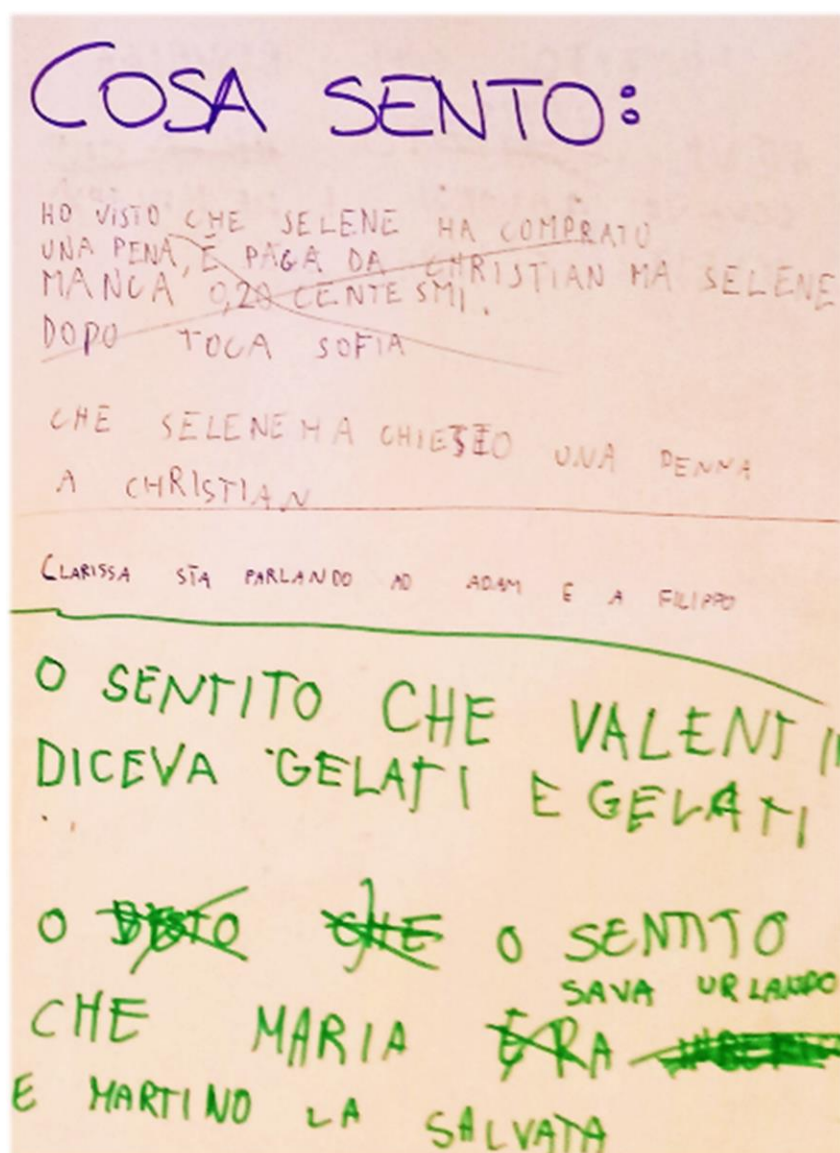 COSA SENTO:
HO VISTO CHE SELENE HA COMPRATO
UNA PENA, E PAGA DA CHRISTIAN MA SELENE
MANCA 0,20 CENTESMI.
DOPO TOCA SOFIA
CHE SELENE HA CHIESTO UNA PENNA
A CHRISTIAN
CLARISSA STA PARLANDO AD ADAM E A FILIPPO
O SENTITO CHE VALENTI
DICEVA GELATI E GELATI
O CHE O SENTITO
SAVA URLANDO
CHE MARIA ERA
E MARTINO LA SALVATA